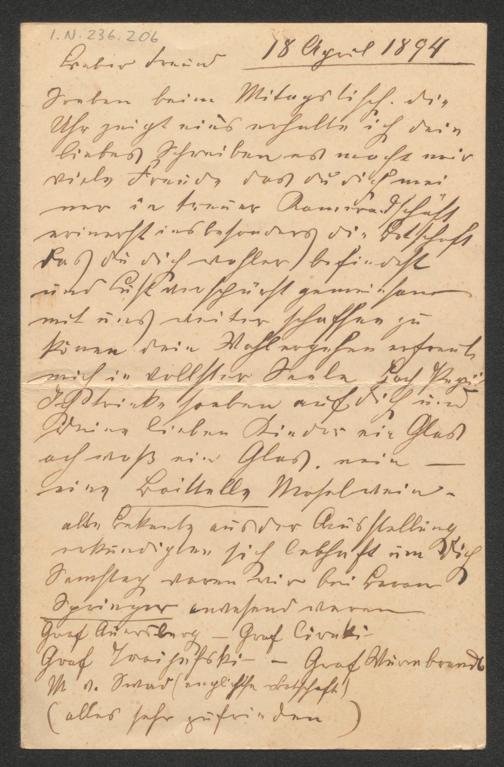 I.N. 236.206
18 April 1894
Lieber Freund
Soeben beim Mitagstisch. die
Uhr zeigt eins erhalte ich dein
liebes Schreiben es macht mir
viele Freude das du dich mei
ner in treuer Kameradschaft
erinerst insbesonders die Botschaft
das du dich wohler befindest
und Lust verspührst gemeinsam
mit uns weiter schaffen zu
könen dein Wohlergehen erfreut
mich in vollster Seele Hoch
Ich trinke soeben auf dich und
Deine lieben Kinder ein Glas
ach was ein Glas. nein —
eine Boittelle Moselwein –
alte Bekante aus der Ausstellung
erkundigten sich lebhaft um Dich
Samstag waren wir bei Baron
Springer anwesend waren
Graf Auersberg – Graf
Graf – Graf Wurmbrandt
M v. (englische Botschaft)
(alles sehr zufrieden)